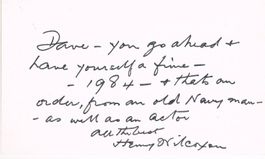 Dave - you go ahead &
have yourself a fine -
- 1984 - & thats an
order, from an old Navy man -
- as well as an actor
All the best
Henry Wilcoxon